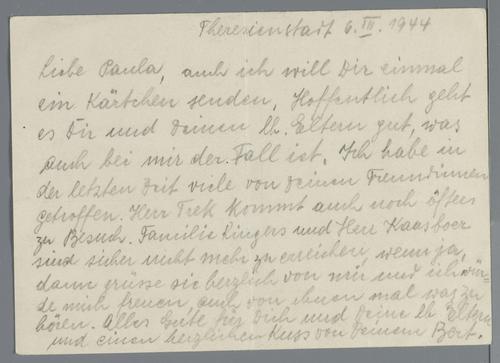 Theresienstadt 6. III. 1944
Liebe Paula, auch ich will Dir einmal
ein Kärtchen senden, Hoffentlich geht
es Dir und Deinen lb. Eltern gut, was
auch bei mir der Fall ist. Ich habe in
der letzten Zeit viele von Deinen Freundinnen
getroffen. Herr Trek kommt auch noch öfters
zu Besuch. Familie Ringers und Herr Kaasboer
sind sicher nicht mehr zu erreichen, wenn ja,
dann grüsse sie herzlich von mir und ich wür-
de mich freuen, auch von ihnen mal was zu
hören. Alles Gute für Dich und Deine lb Eltern
und einen herzlichen Kuss von Deinem Bert.